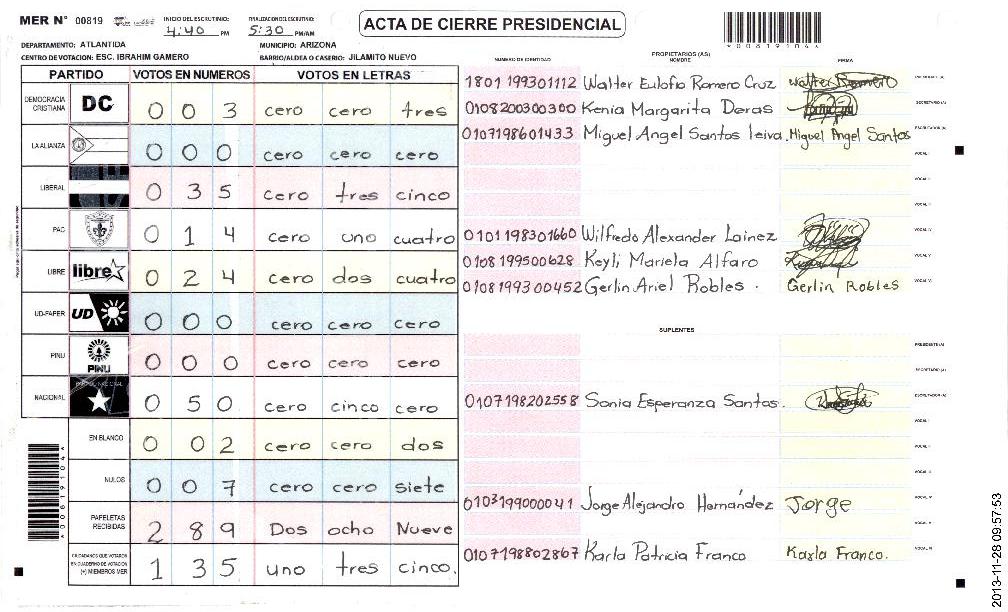 MER N° 00819
INICIO DEL ESCRUTINIO: 4:40 PM
FINALIZACION DEL ESCRUTINIO: 5:30 PM/AM
ACTA DE CIERRE PRESIDENCIAL
*00819104*
DEPARTAMENTO: ATLANTIDA MUNICIPIO: ARIZONA
CENTRO DE VOTACION: ESC. IBRAHIM GAMERO BARRIO/ALDEA O CASERIO: JILAMITO NUEVO
PARTIDO VOTOS EN NUMEROS VOTOS EN LETRAS
DEMOCRACIA CRISTIANA DC 0 0 3 cero cero tres
LA ALIANZA 0 0 0 cero cero cero
LIBERAL 0 3 5 cero tres cinco
PAC 0 1 4 cero uno cuatro
LIBRE libre 0 2 4 cero dos cuatro
UD-FAPER UD 0 0 0 cero cero cero
PINU PINU 0 0 0 cero cero cero
NACIONAL 0 5 0 cero cinco cero
EN BLANCO 0 0 2 cero cero dos
NULOS 0 0 7 cero cero siete
PAPELETAS RECIBIDAS 2 8 9 Dos ocho Nueve
CIUDADANOS QUE VOTARON EN CUADERNO DE VOTACION (+) MIEMBROS MER 1 3 5 uno tres cinco.
*00819104*
NUMERO DE IDENTIDAD PROPIETARIOS (AS) NOMBRE FIRMA
1801 199301112 Walter Eulofio Romero Cruz Walter Romero
0108200300300 Kenia Margarita Deras SECRETARIO (A)
0107198601433 Miguel Angel Santos leiva. Miguel Angel Santos ESCRUTADOR (A)
VOCAL I
VOCAL II
VOCAL III
0101198301660 Wilfredo Alexander Lainez VOCAL IV
0108199500628 Keyli Mariela Alfaro VOCAL V
0108199300452 Gerlin Ariel Robles . Gerlin Robles VOCAL VI
SUPLENTES
PRESIDENTE (A)
SECRETARIO (A)
0107198202558 Sonia Esperanza Santos. ESCRUTADOR (A)
VOCAL I
VOCAL II
VOCAL III
0103199000041 Jorge Alejandro Hernández Jorge VOCAL IV
VOCAL V
0107198802867 Karla Patricia Franco Karla Franco. VOCAL VI
2013-11-28 09:57:53